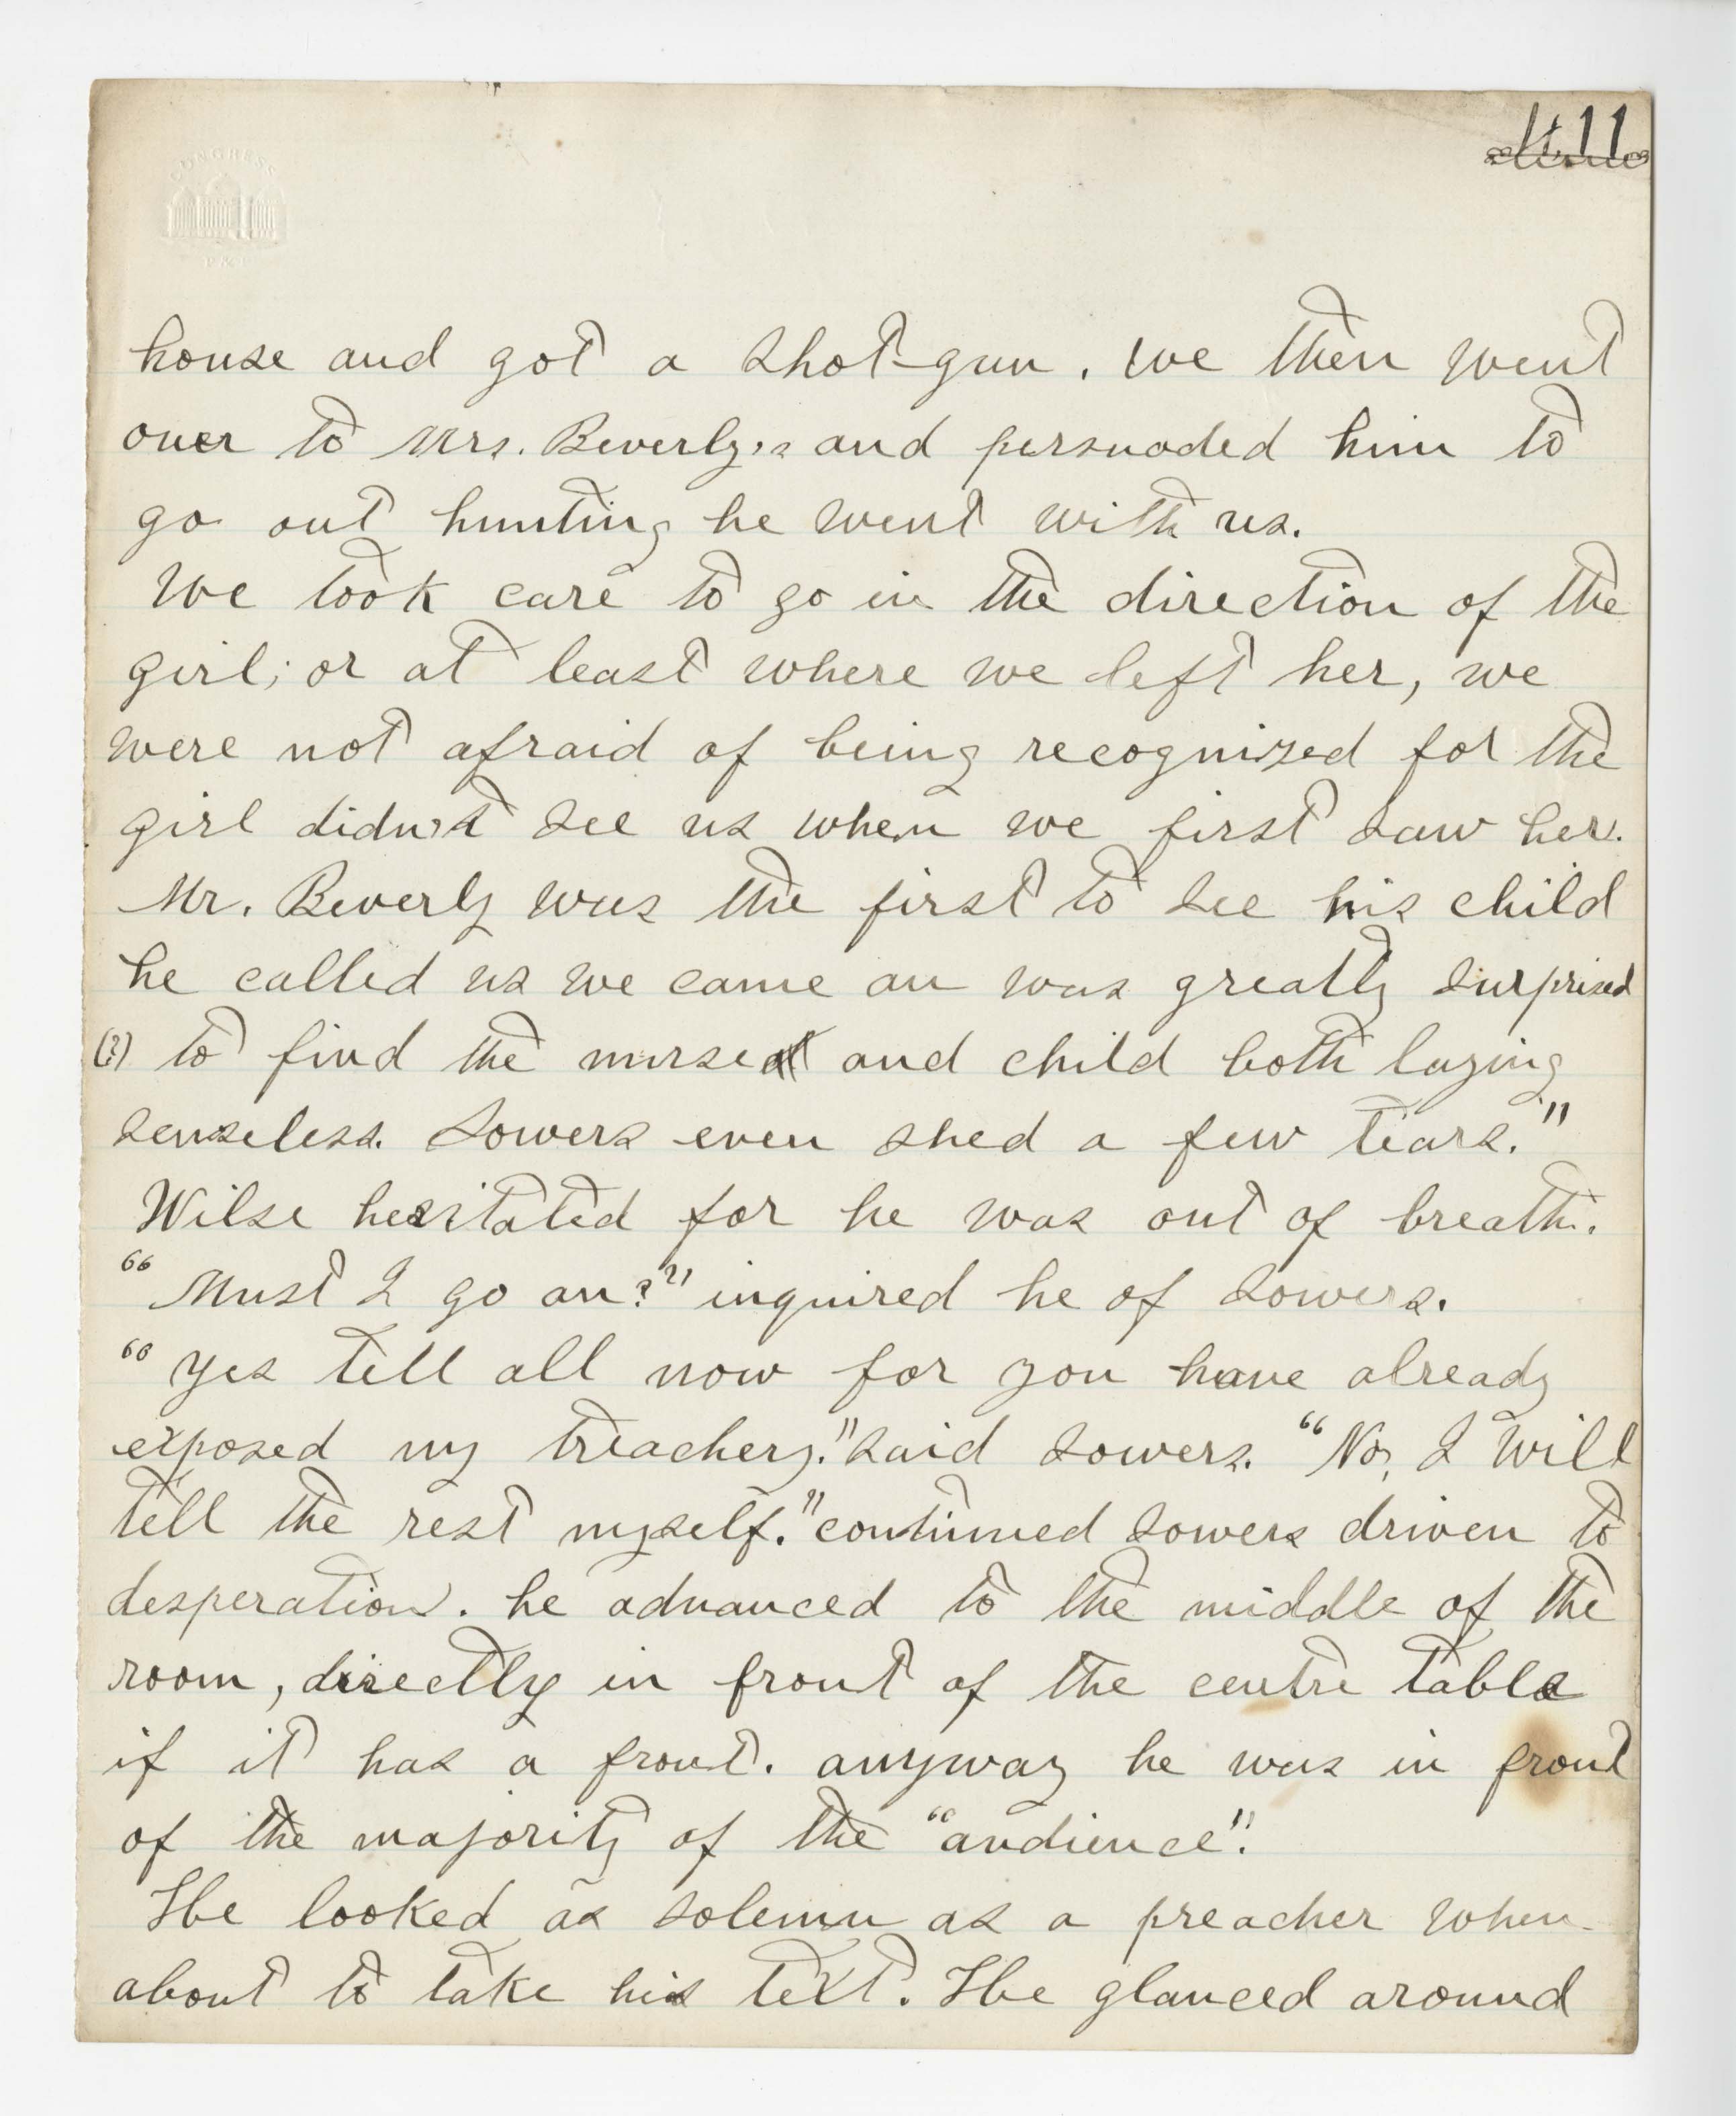 CONGRESS
P & P
11
house and got a shot-gun. We then went
over to Mrs. Beverly's and persuaded him to
go out hunting he went with us.
We took care to go in the direction of the
girl; or at least where we left her, we
were not afraid of being recognized for the
girl didn't see us when we first saw her.
Mr. Beverly was the first to see his child
he called us we came an was greatly surprised
(?) to find the nurse and child both laying
senseless. Sowers even shed a few tears."
Wilse hesitated for he was out of breath.
"Must I go an?" inquired he of Sowers.
"Yes tell all now for you have already
exposed my treachery." said Sowers. "No, I will
tell the rest myself." continued Sowers driven to
desperation. he advanced to the middle of the
room, directly in front of the centre table
if it has a front. anyway he was in front
of the majority of the "audience".
He looked as solemn as a preacher when
about to take his text. He glanced around